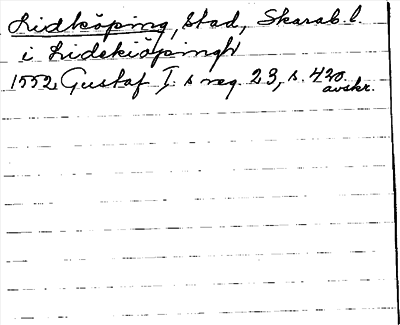 Lidköping, Stad, Skarab. l.
i Lideköpingh
1552 Gustaf I:s reg. 23, s. 420.
avskr.